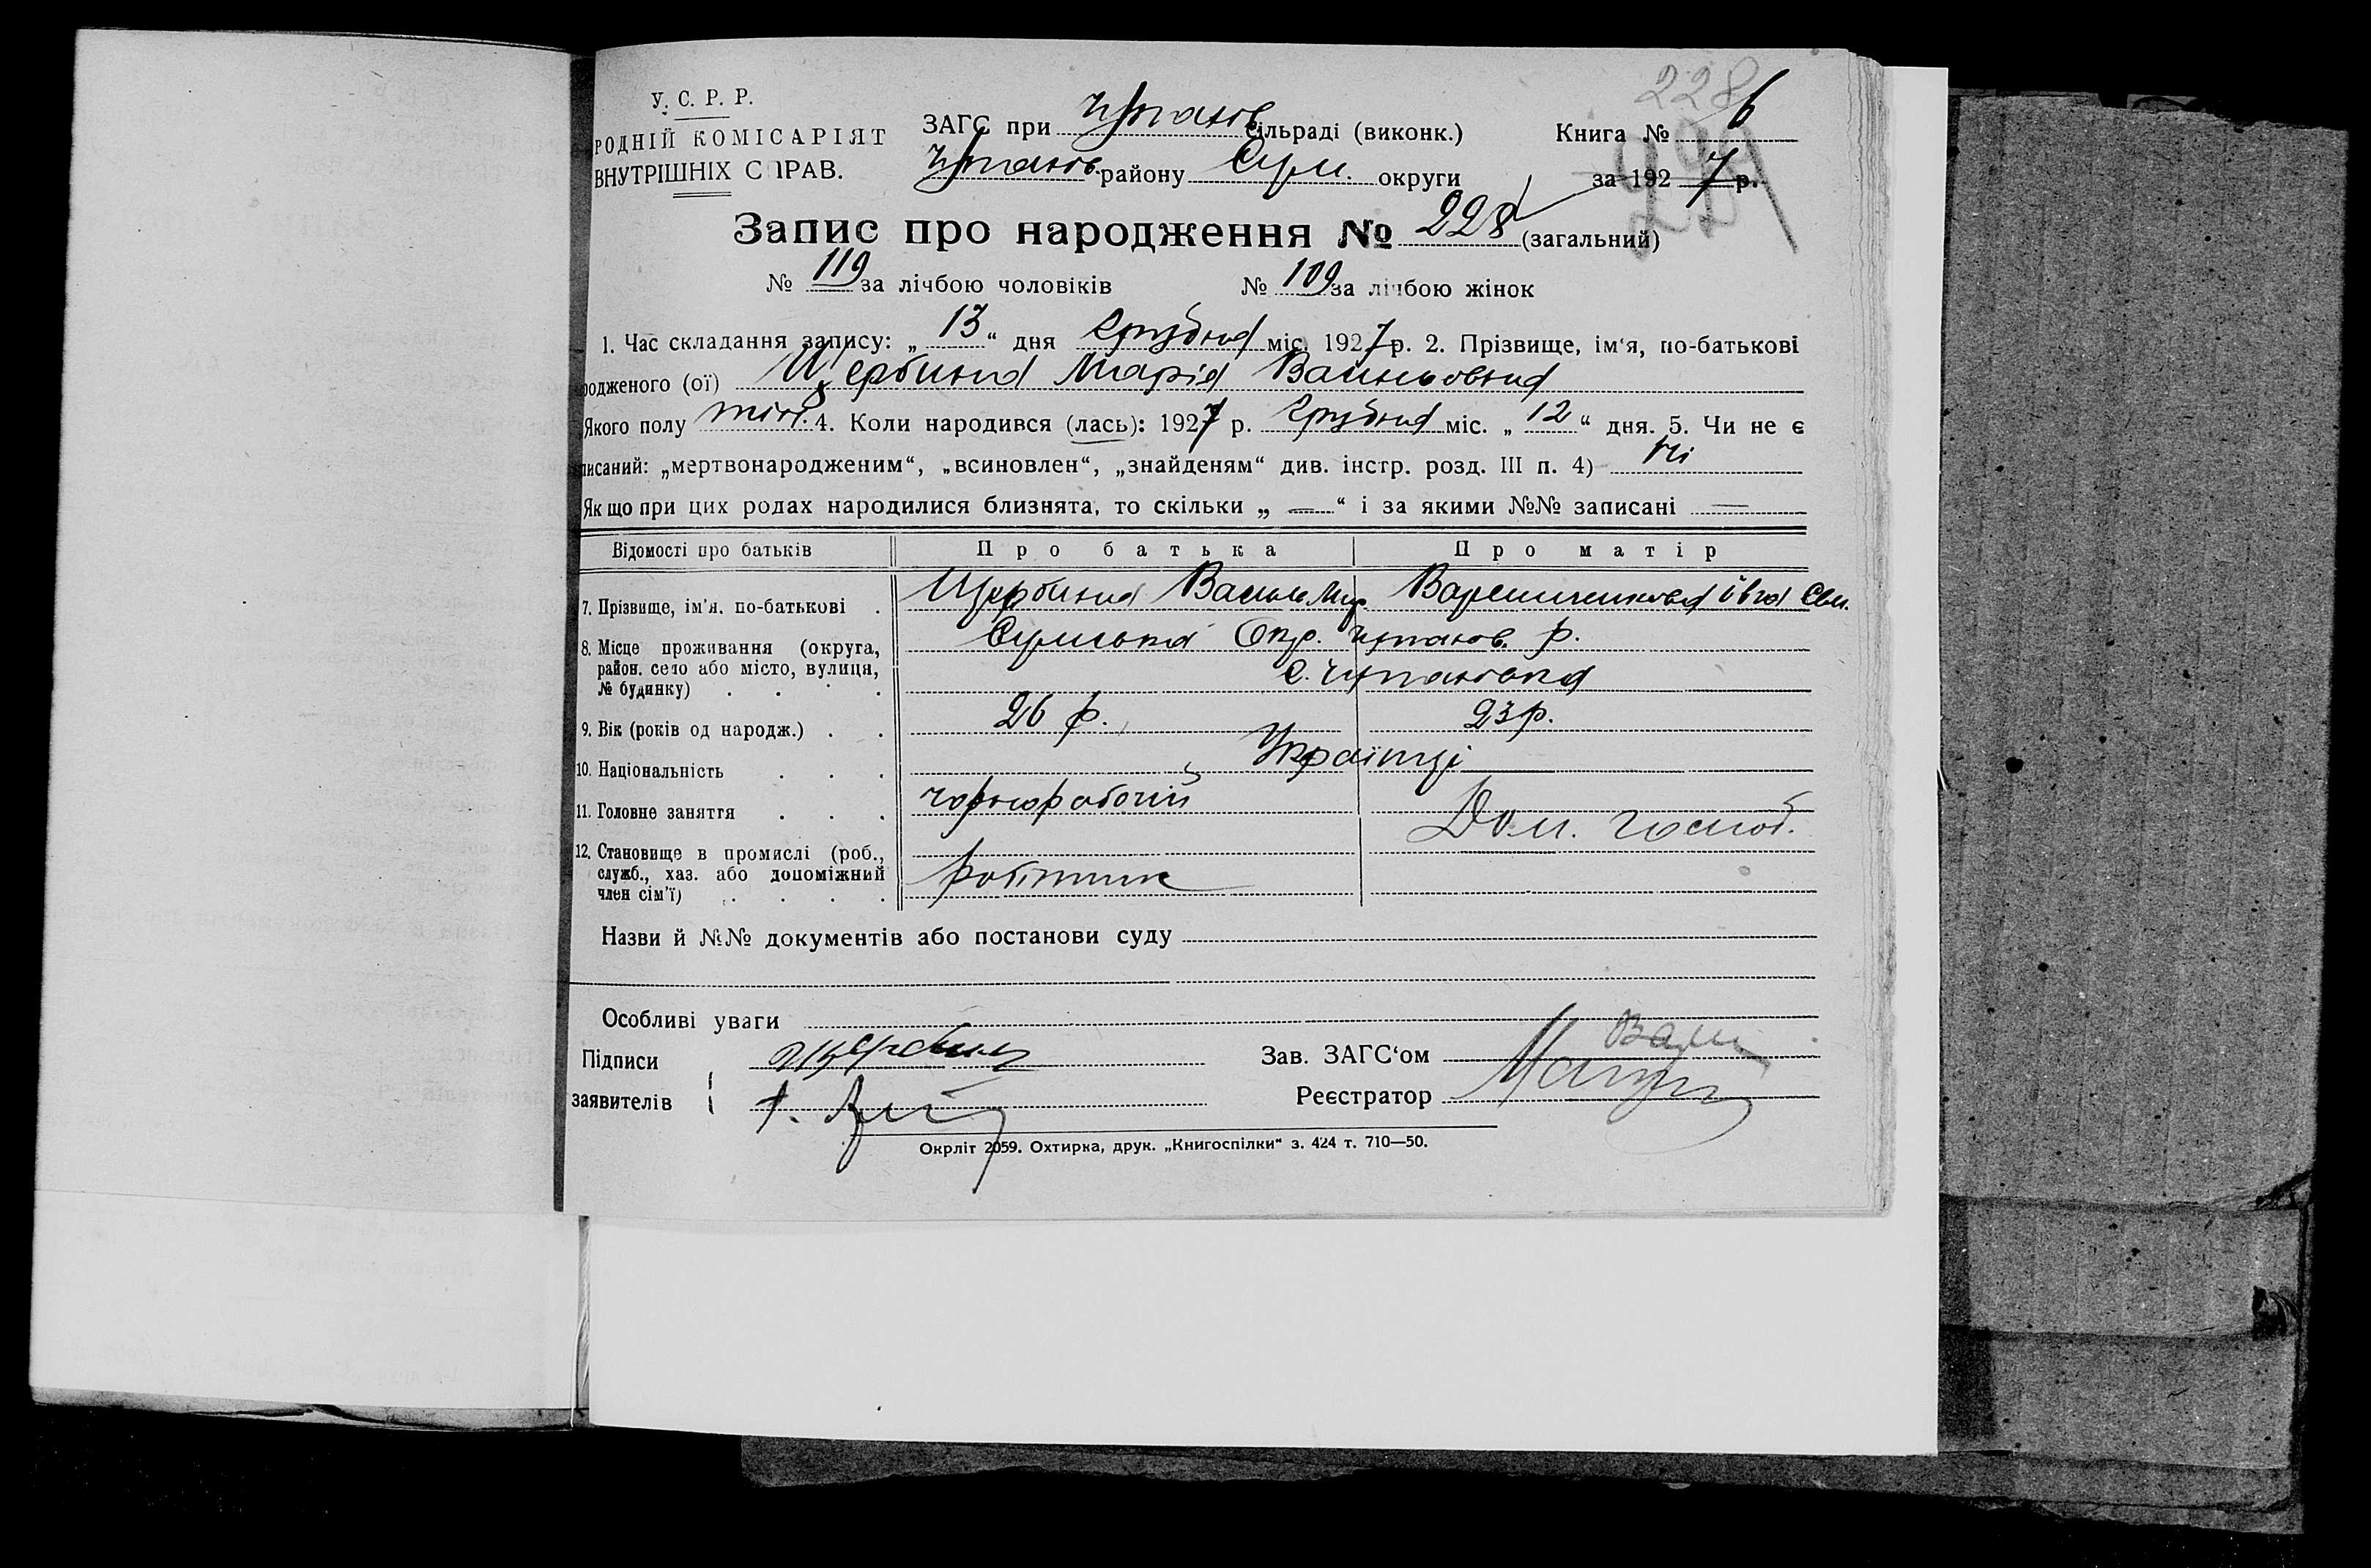 228
У. С. Р. Р.
РОДНІЙ КОМІСАРІЯТ
ВНУТРІШНІХ СПРАВ.
ЗАГС при Чупахів сільраді (виконк.) Книга № 6
Чупахів. району Сум. округи за 1927 р.
Запис про народження № 228 (загальний)
№ 119 за лічбою чоловіків № 109 за лічбою жінок
1. Час складання запису: „13“ дня Грудня міс. 1927 р. 2. Прізвище, ім‘я, по-батькові
родженого (ої) Щербина Марія Васильовна
Якого полу жін. 4. Коли народився (лась): 1927 р. Грудня міс. „12“ дня. 5. Чи не є
писаний: „мертвонародженим“, „всиновлен“, „знайденям“ див. інстр. розд. III п. 4) Ні
Якщо при цих родах народилися близнята, то скільки „ — “ і за якими №№ записані —
Відомості про батьків Про батька Про матір
7. Прізвище, ім'я, по-батькові . Щербина Василь
8. Місце проживання (округа, Сумська Окр. р.
район, село або місто, вулиця, с.
№ будинку) . . . .
9. Вік (років од народж.) . . 26 р. 23 р.
10. Національність . . . Українці
11. Головне заняття . . . чорнорабочій Дом. госпоД.
12. Становище в промислі (роб.,
служб., хаз. або допоміжний робітник
член сім'ї) . . . .
Назви й №№ документів або постанови суду
Особливі уваги
Підписи Зав. ЗАГС‘ом
заявителів Реєстратор
Окрліт 2059. Охтирка, друк. „Книгоспілки“ з. 424 т. 710—50.